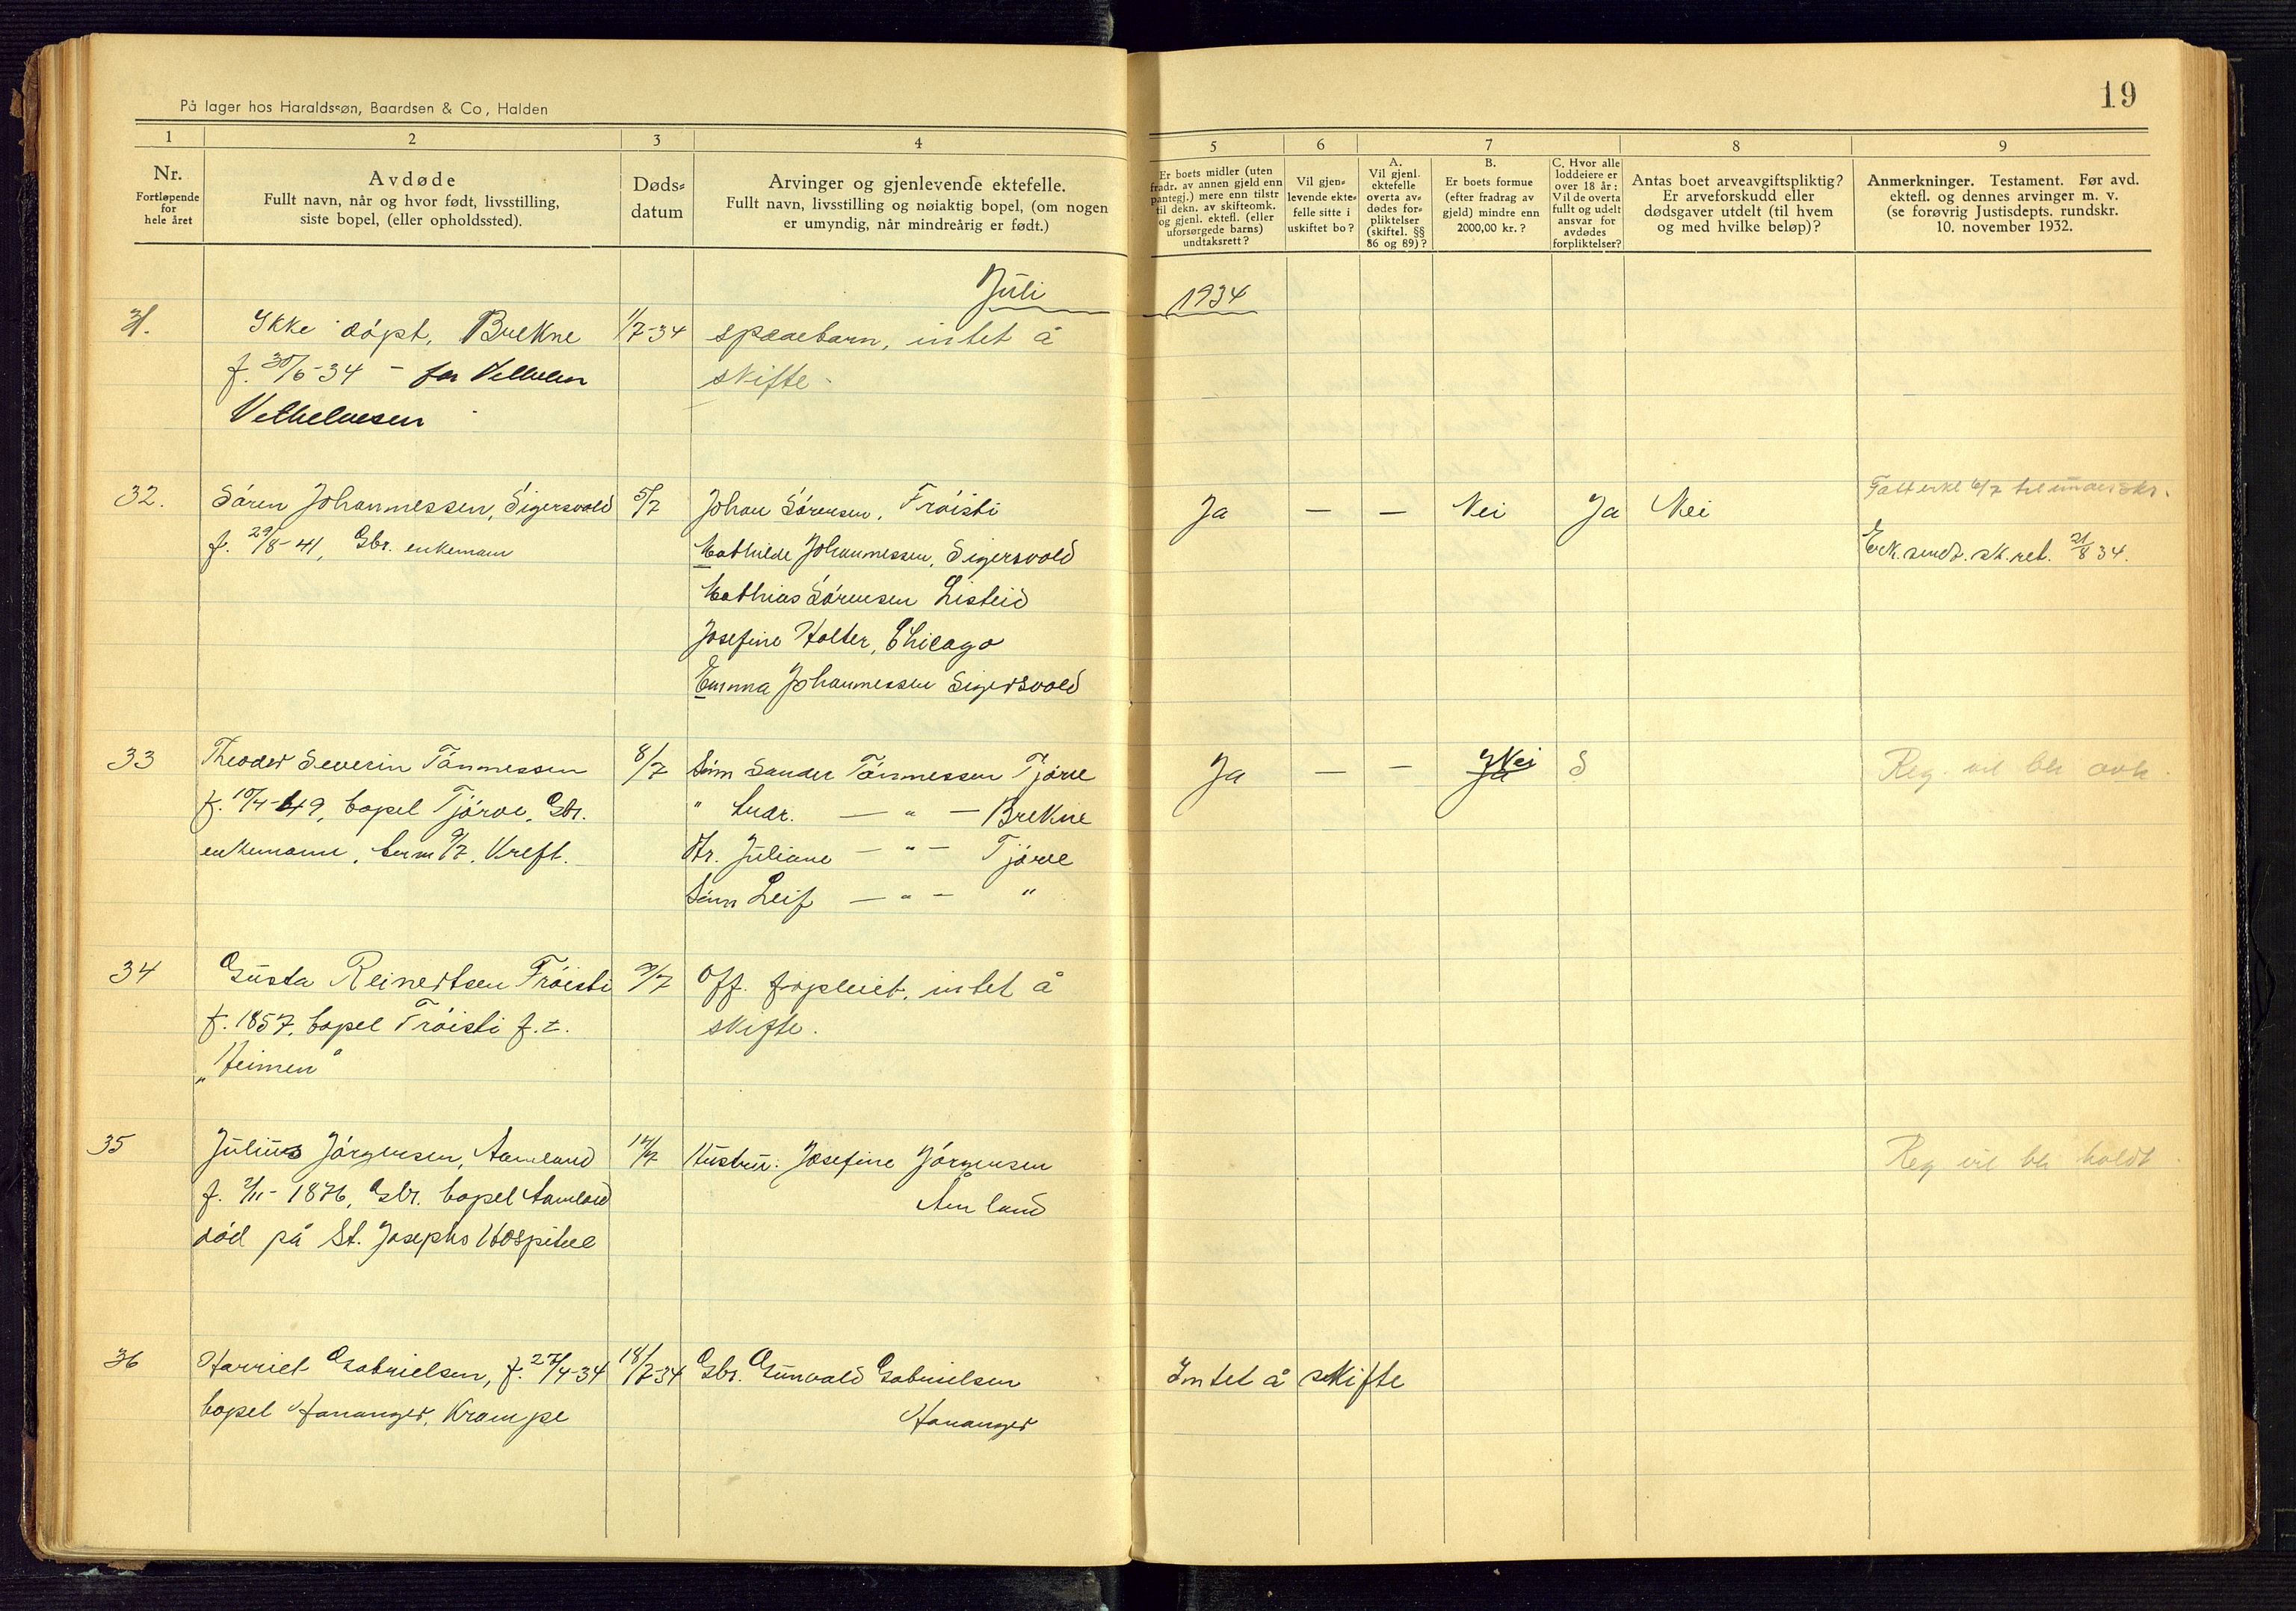 På lager hos Haraldssøn, Baardsen & Co, Halden
19
1 2 3 4 5 6 7 8 9
Nr.
Fortløpende
for
hele året
Avdøde
Fullt navn, når og hvor født, livsstilling,
siste bopel, (eller opholdssted).
Døds-
datum
Arvinger og gjenlevende ektefelle.
Fullt navn, livsstilling og nøiaktig bopel, (om nogen
er umyndig, når mindreårig er født.)
Er boets midler (uten
fradr. av annen gjeld enn
pantegj.) mere enn tilstr
til dekn. av skifteomk.
og gjenl. ektefl. (eller
uforsørgede barns)
undtaksrett?
Vil gjen-
levende ekte-
felle sitte i
uskiftet bo?
A.
Vil gjenl.
ektefelle
overta av-
dødes for-
pliktelser
(skiftel. §§
86 og 89)?
B.
Er boets formue
(efter fradrag av
gjeld) mindre enn
2000,00 kr.?
C. Hvor alle
loddeiere er
over 18 år:
Vil de overta
fullt og udelt
ansvar for
avdødes
forpliktelser?
Antas boet arveavgiftspliktig?
Er arveforskudd eller
dødsgaver utdelt (til hvem
og med hvilke beløp)?
Anmerkninger. Testament. Før avd.
ektefl. og dennes arvinger m. v.
(se forøvrig Justisdepts. rundskr.
10. november 1932.
Juli 1934
31. Ikke døpt, Brekne 1/7-34 spædbarn, intet å
f. 30/6-34 - far Vilhelm skifte
Vilhelmsen
32. Sören Johannessen, Sigersvold 5/7 Johan Sörensen, Fröisti Ja — — Nei Ja Nei
f. 29/8-41, Gbr. enkemann Mathilde Johannessen, Sigersvold Erk. sendt. sk.ret. 21/8 34.
Mathias Sörensen Listeid
Josefine Holter, Chicago
Emma Johannessen Sigersvold
33 Theodor Severin Tönnessen 8/7 Sönn Sander Tönnessen Tjörve Ja — — Ja Nei Reg. vil bli avh.
f. 10/4-49, bopel Tjörve, Gbr. " — " — Brekne
enkemann, 9/7, Kreft. Dtr. Juliane — " — Tjörve
Sönn Leif — " — "
34 Gusta Reinertsen Fröisti 9/7 Off. forpleiet, intet å
f. 1857, bopel Fröisti f.t. skifte.
„Heimen"
35 Julius Jörgensen, Aamland 14/7 Hustru: Josefine Jörgensen Reg vil bli holdt.
f. 2/11-1876, Gbr. bopel Aamland Åmland
död på St. Josephs Hospital
36 Harriet Gabrielsen, f. 27/4-34 18/7-34 Gbr. Gunvald Gabrielsen Intet å skifte
bopel Hananger, Krampe Hananger